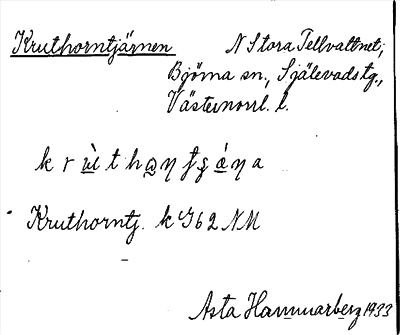 Kruthorntjärnen N Stora Tellvattnet,
Björna sn., Själevads tg.,
Västernorrl. l.
k r ù t h
Kruthorntj. k G 62 NM
Asta Hammarberg 1933